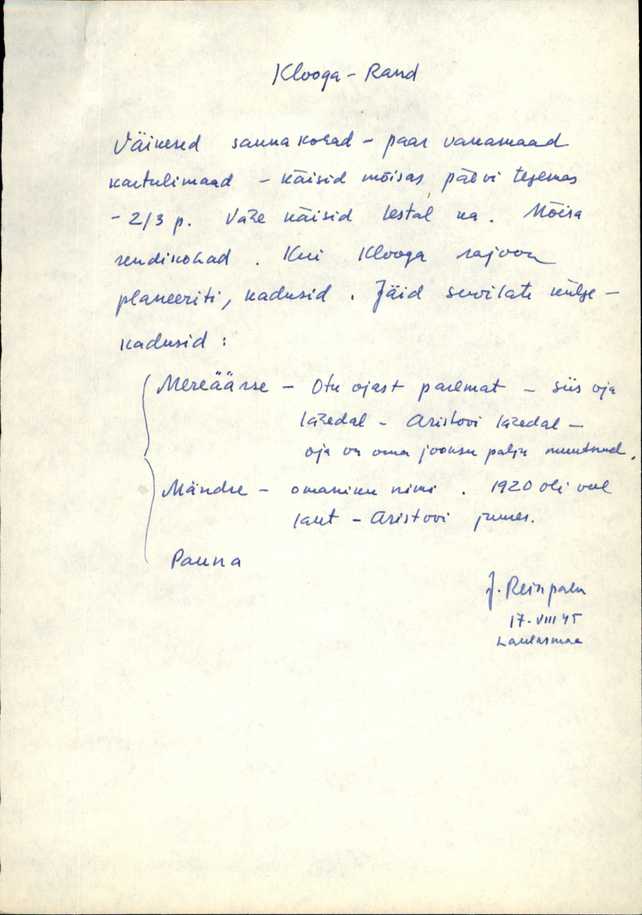 Klooga-Rand
Väikesed saunakohad - paar vakamaad
kartulimaad - käisid mõisas, päevi tegemas
- 2/3 p. Vahe käisid testal ka. Mõisa
rendikohad. Kui Klooga rajoon
planeeriti, kadusid. Jäid suvilate külge -
kadusid:
Mereäärse - Otu ojast paremat - siis oja
lähedal - Aristovi lähedal -
oja on oma jooksu palju muutnud.
Mändre - omaniku nimi. 1920 oli veel
laut - Aristovi juures.
Panna
J. Reinpalu
17. VIII 45
Laulasmaa